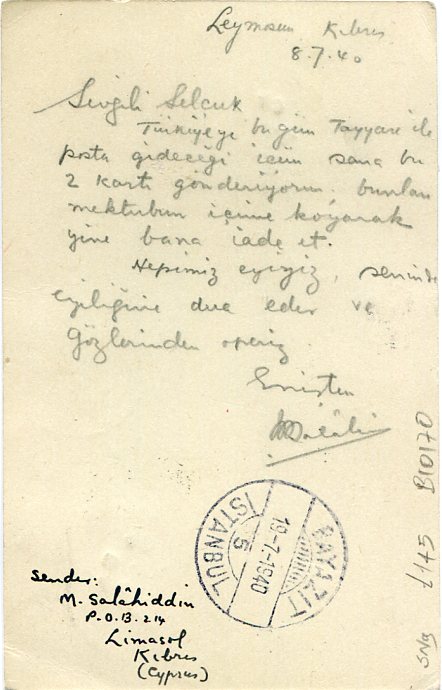 Leymosun Kıbrıs
8.7.40
Sevgili Selcuk
Türkiyeye bugün Tayyare ile
posta gideceği için sana bu
2 kartı gönderiyorum. bunları
mektubun içine koyarak
yine bana iade et.
Hepimiz eyiyiz, seninde
eyiliğine dua eder ve
gözlerinden öperiz.
Enişten
MSalâhi
BAYAZIT
19-7-1940
5
İSTANBUL
Sender:
M. Salâhiddin
P.O.B. 214
Limasol
Kıbrıs
(Cyprus)
B10170
£145